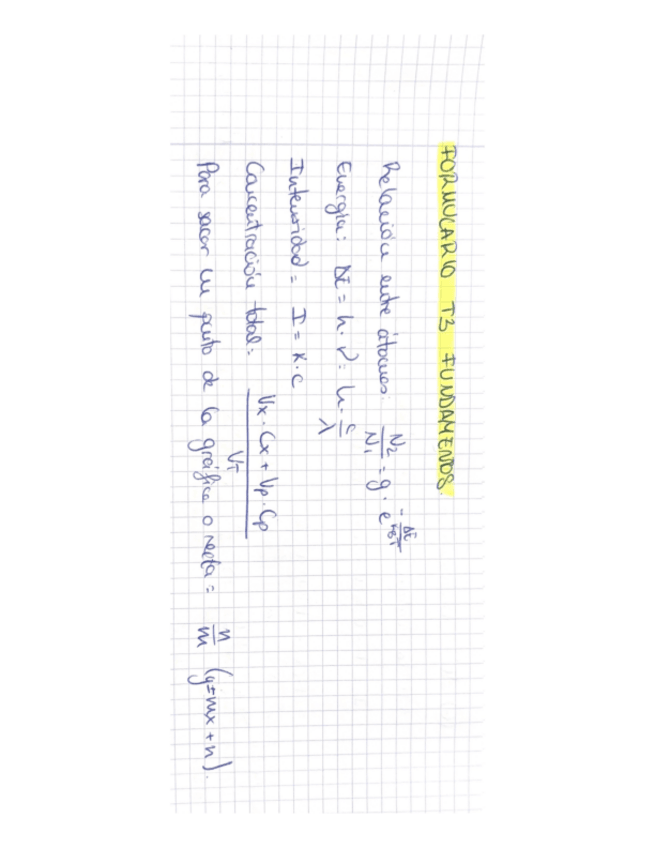 FORMULARIO T3 FUNDAMENTOS.
Relación entre átomos: N2/N1 = g · e^(-ΔE/KBT)
Energía: ΔE = h · ν = h · c/λ
Intensidad = I = K · C
Concentración total: (Vx · Cx + Vp · Cp)/VT
Para sacar un punto de la gráfica o recta = n/m (y=mx + n).